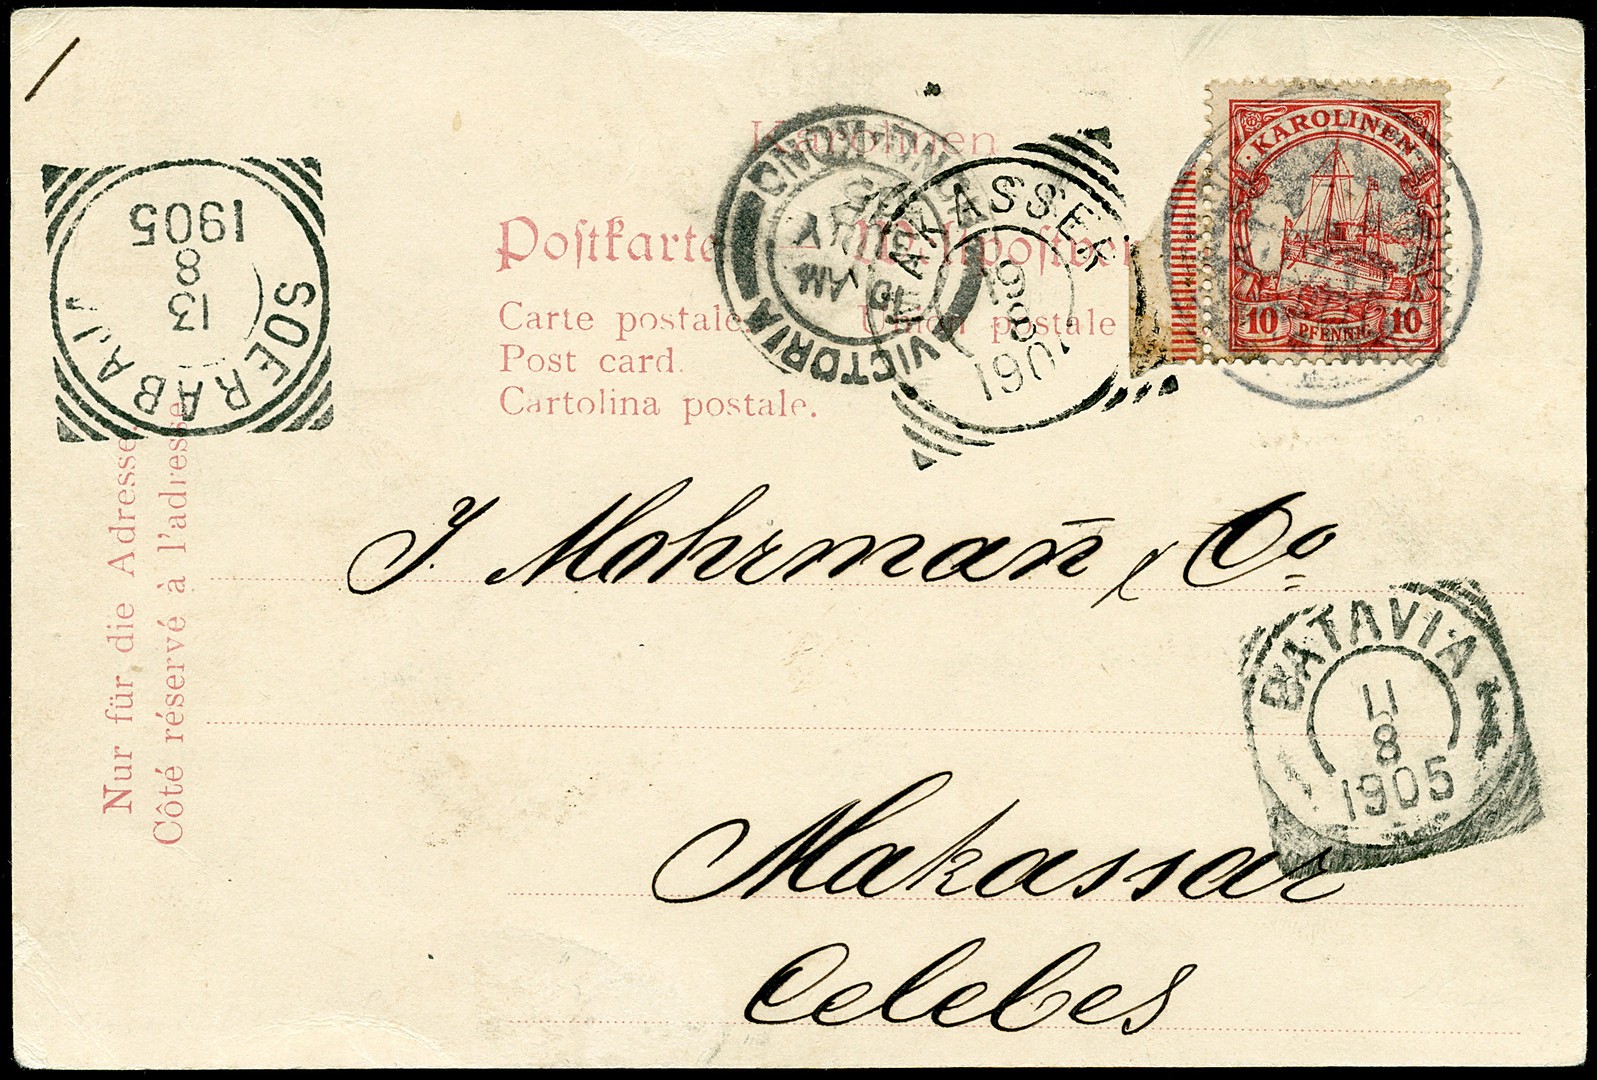 Karolinen
Postkarte — Weltpostver
Carte postale. Union postale
Post card.
Cartolina postale.
Nur für die Adresse.
Côté réservé à l'adresse
KAROLINEN
10 PFENNIG 10
SOERABAJA
13
8
1905
VICTORIA HONG-KONG
10 AM
MAKASSER
19
8
190
BATAVIA
11
8
1905
J. Mohrman̄ & Co
Makassar
Celebes